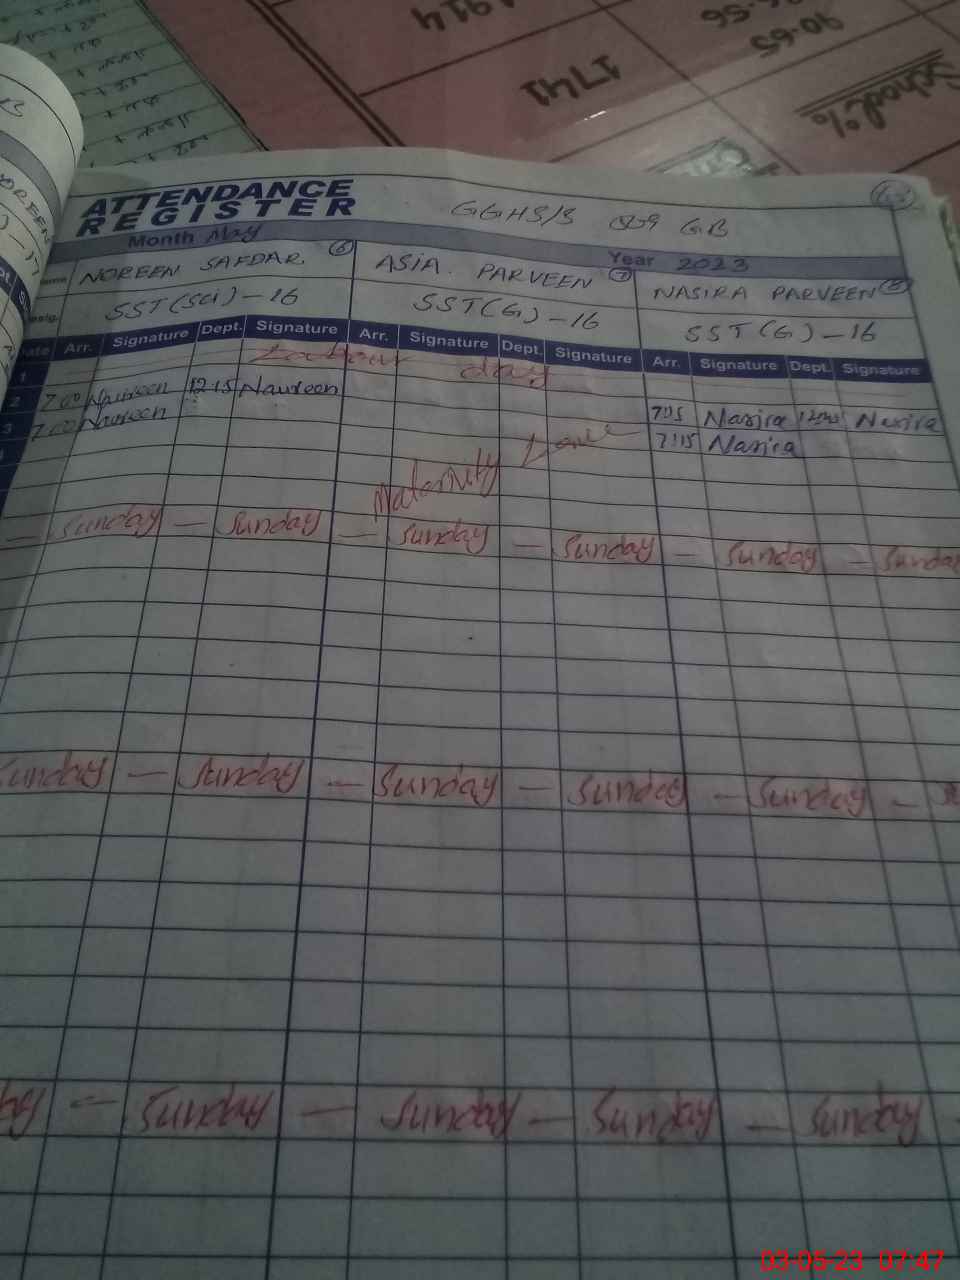 1914
1741
90.65
School%
ATTENDANCE
REGISTER
GGHS/S GB
Month May
Year 2023
NOREEN SAFDAR 6
ASIA PARVEEN 7
NASIRA PARVEEN 8
SST(Sci)-16
SST(G)-16
SST(G)-16
Arr. Signature Dept. Signature Arr. Signature Dept. Signature Arr. Signature Dept. Signature
1 Labour day
2 7:00 Naureen 12:15 Naureen 7:15 Nasira Nasira
3 7:00 Naureen 7:15 Nasira
Maternity Leave
— Sunday — Sunday — Sunday — Sunday — Sunday — Sunday
Sunday — Sunday — Sunday — Sunday — Sunday —
— Sunday — Sunday — Sunday — Sunday
03-05-23 07:47